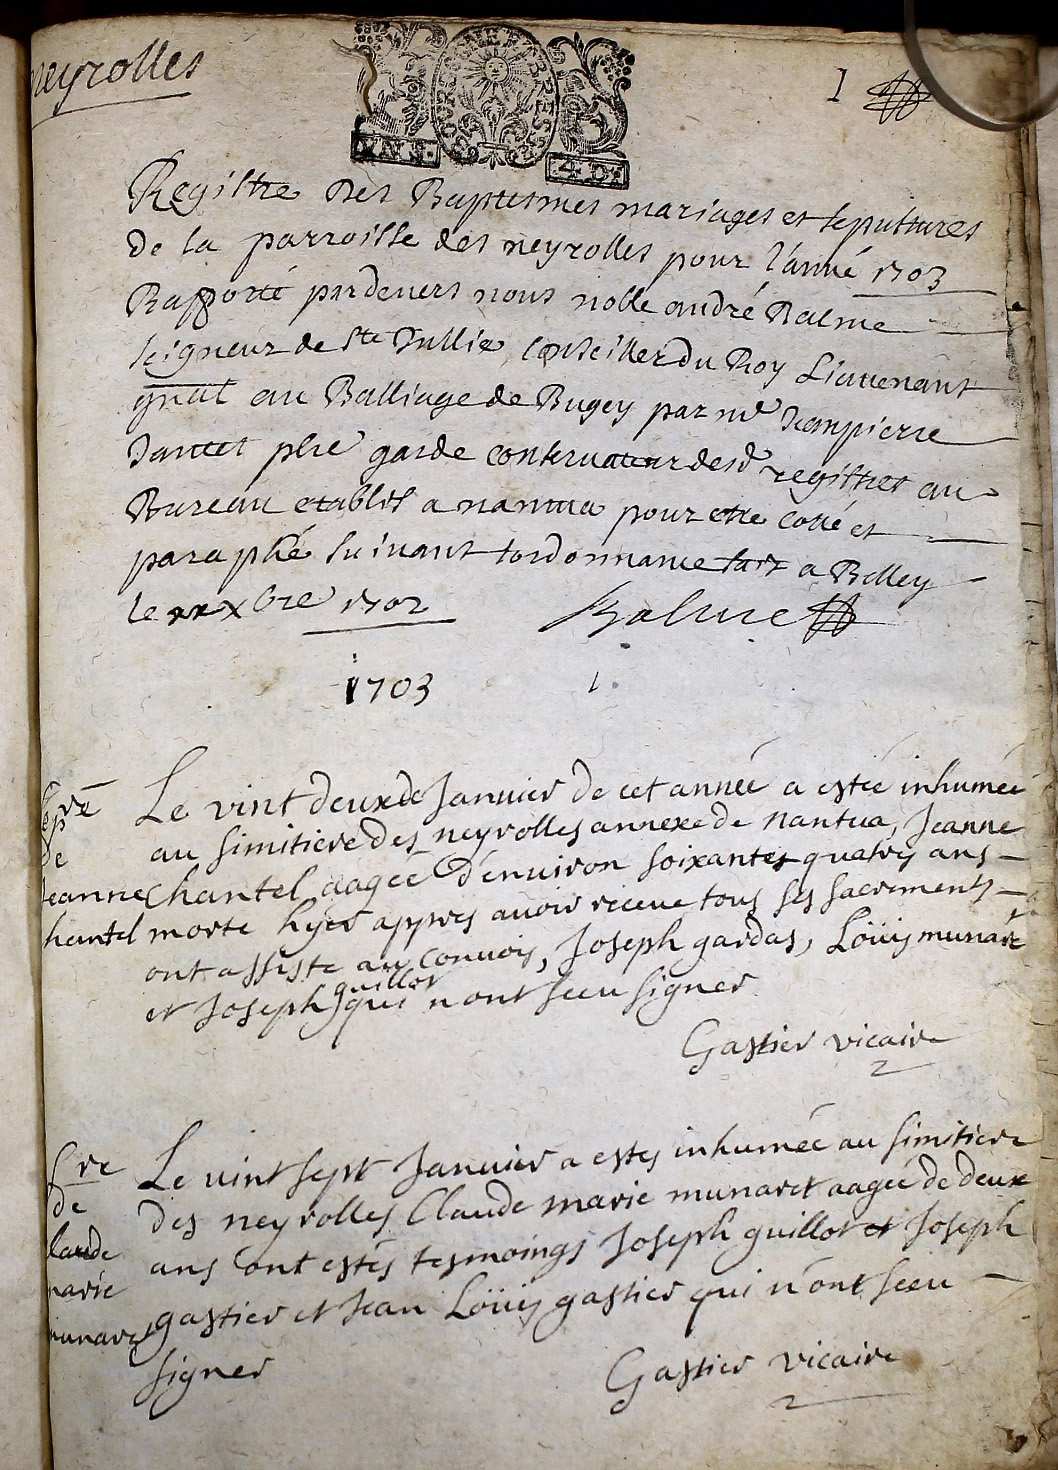 neyrolles
1
4 D
Registre des Baptesmes mariages et sepultures
de la parroisse des neyrolles pour l'année 1703
Rapporté pardevers nous noble andré Balme
seigneur de Ste Jullie, Conseiller du Roy Lieutenant
gnal au Balliage de Bugey par me Jeanpierre
Jantet pbre garde conservateur desd registres au
Bureau etablis a nantua pour etre cotté et
paraphé suivant lordonnance fait a Belley
le xbre 1702 Balme
1703
Le vint deux de Janvier de cet année a estée inhumée
au simitiere des neyrolles annexe de nantua, Jeanne
Chantel aagée d'environ soixantes quatres ans
morte hyer appres avoir receue tous ses sacrements
ont assiste au convoy, Joseph gardas, Loüis munaret
et Joseph guillot qui n ont sceu signer
Gastier vicaire
Sre
de
Jeanne
hantel
Le vint sept Janvier a estes inhumée au simitiere
des neyrolles Claude marie munaret aagée de deux
ans ont estés tesmoings Joseph guillot et Joseph
gastier et Jean Loüis gastier qui n'ont sceu
signer
Gastier vicaire
Sre
de
laude
marie
munaret